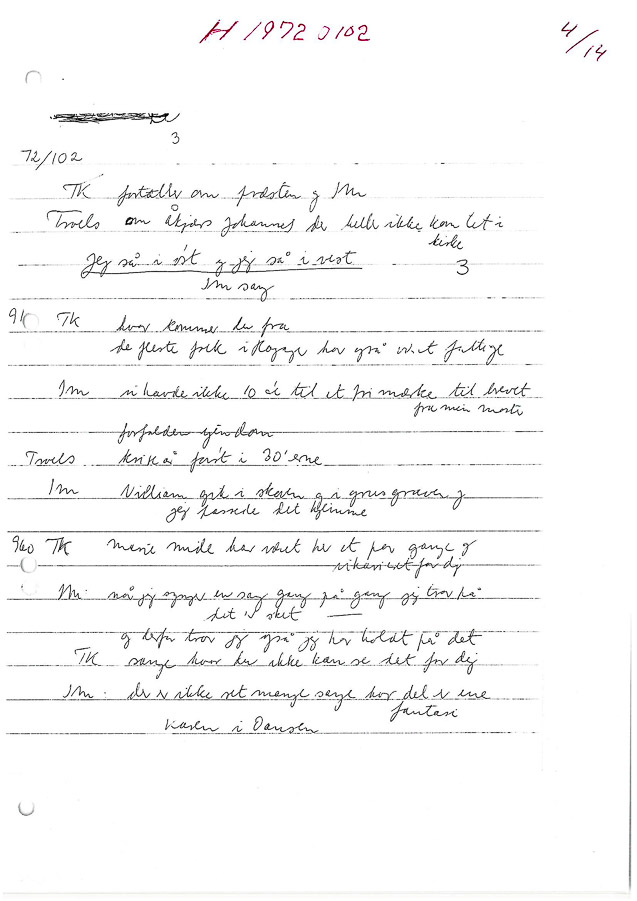 H 1972 0102
4/14
3
72/102
TK fortæller om præsten og Im
Troels om åkjærs Johannes der heller ikke kan let i
kirke
Jeg så i øst og jeg så i vest
3
Im sang
TK hvor kommer du fra
de fleste folk i har også været fattige
Im vi havde ikke 10 øre til et frimærke til brevet
fra min moster
forfalden ejendom
Troels kriseår først i 30'erne
Im Villiam gik i skoven og i grusgraven og
jeg passede det hjemme
960 TK har været her et par gange og
for dig
Im: når jeg synger en sang gang på gang jeg tror på
det er sket
og derfor tror jeg også jeg har holdt på det
TK sange hvor du ikke kan se det for dig
Im: der er ikke ret mange sange hvor det er ene
fantasi
Karen i Dansen